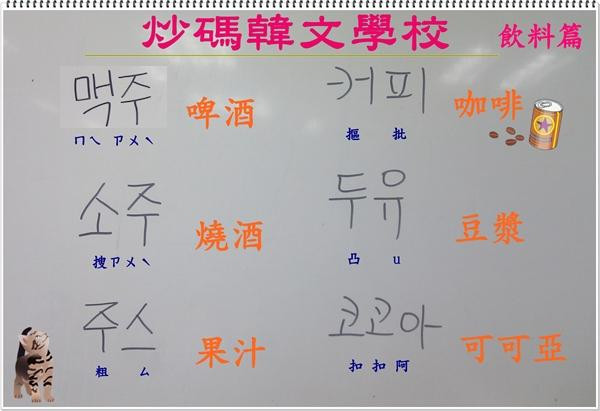 炒碼韓文學校 飲料篇
맥주 啤酒 커피 咖啡
ㄇㄟ ㄗㄨˋ 摳 批
소주 燒酒 두유 豆漿
搜ㄗㄨˋ 凸 u
주스 果汁 코코아 可可亞
粗 ㄙ 扣 扣 阿